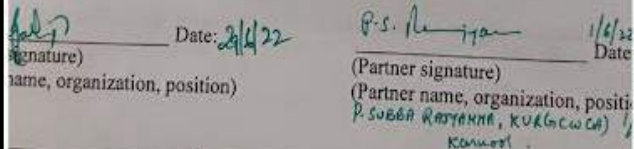 Date: 29/6/22
ignature)
name, organization, position)
P.S. 1/6/22
Date
(Partner signature)
(Partner name, organization, positi
P. SUBBA RAYAMMA, KURGCWCA)
Karnool.